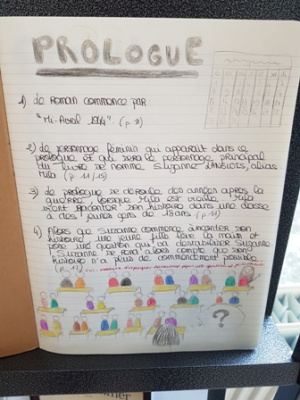 PROLOGUE
1) Le roman commence par
"Mi-Avril 1944". (p 9)
2) Le personnage féminin qui apparait dans ce
prologue et qui sera le personnage principal
du livre se nomme Suzanne , alias
Mila (p 11/15)
3) Le prologue se déroule des années après la
guerre, lorsque Mila est vieille. Mila
vient raconter son histoire dans une classe
à des jeunes gens de 18 ans. (p 11)
4) Alors que Suzanne commence à raconter son
histoire, une jeune fille lève la main et
pose une question qui va déstabiliser Suzanne
. Suzanne se rend alors compte que son
histoire n'a plus de commencement possible.
?